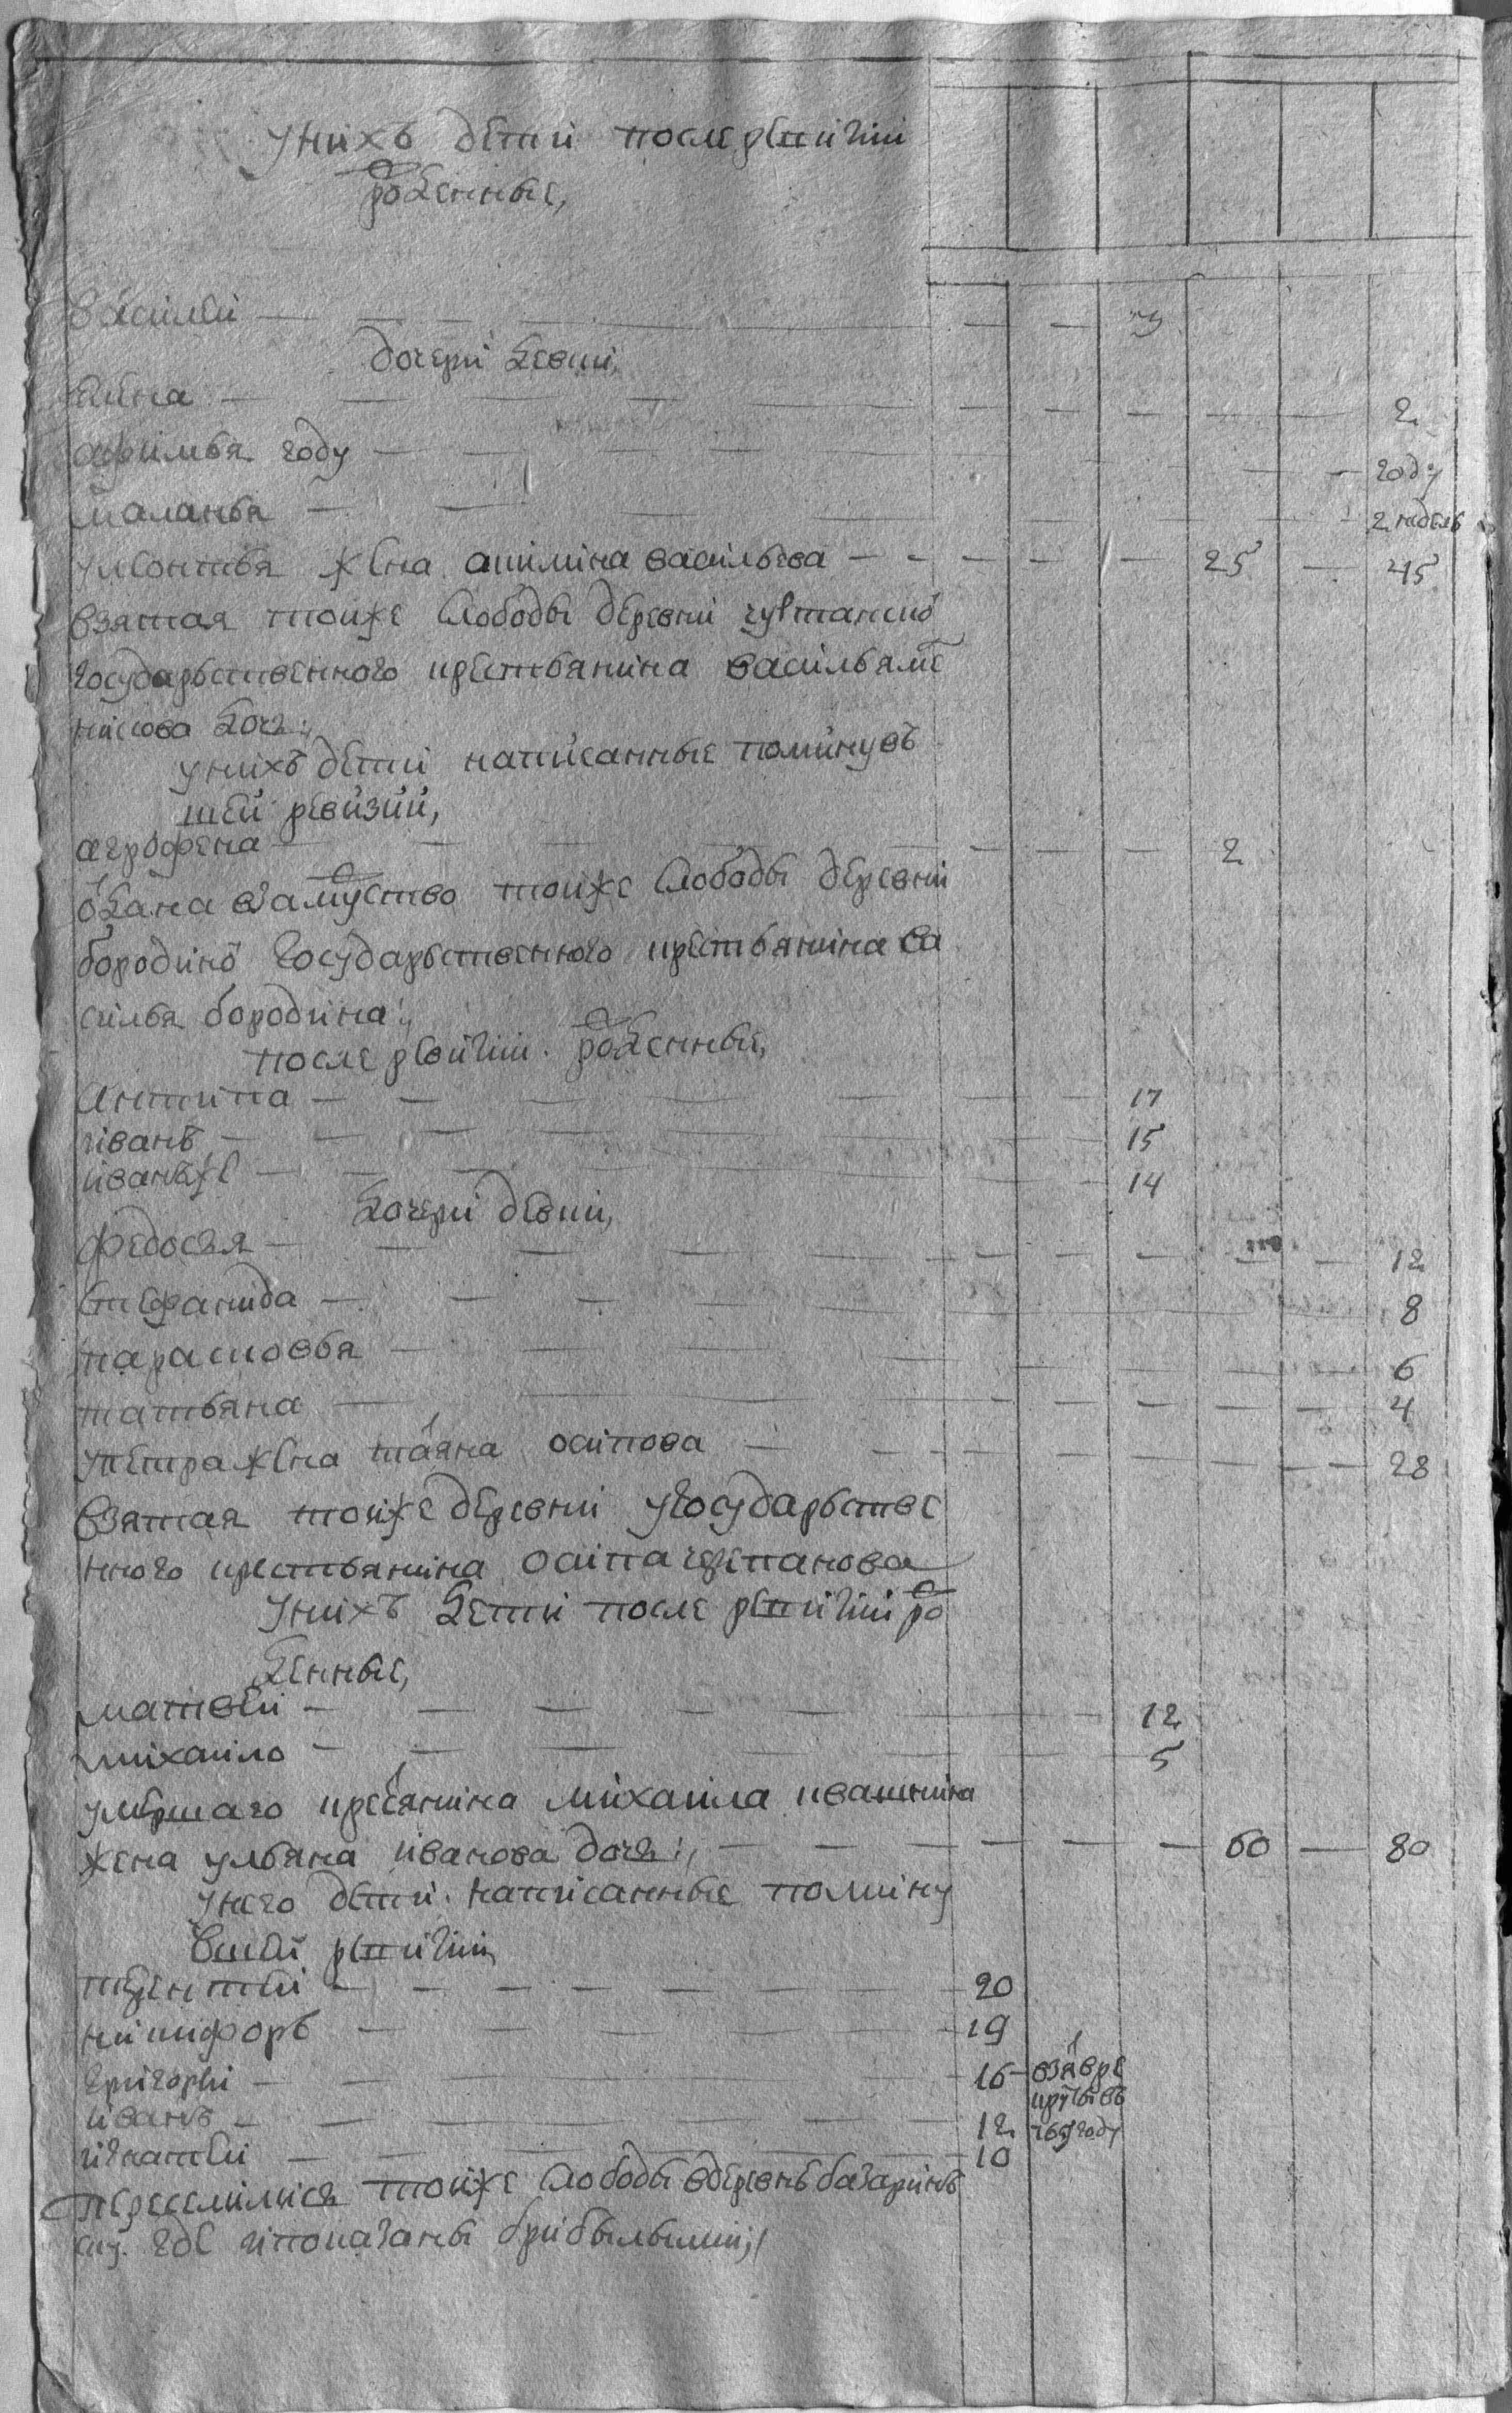 у нихъ дети после ревизии
рожденные,
василей — 3
дочери девки,
анна — 2
афимья году — году
маланья — 2 недель
у леонтья жена акилина васильева — 25 — 45
взятая тойже слободы деревни
государственного крестьянина василья
дочь:,
у нихъ дети написанные по минув
шей ревизии,
агрофена — 2
отдана взамужство тойже слободы деревни
бородиной государственного крестьянина ва
силья бородина:,
после ревизии рожденный,
антипа — 17
иванъ — 15
иванъ же — 14
дочери девки,
федосья — 12
стефанида — 8
парасковья — 6
татьяна — 4
у петра жена татьяна осипова — 28
взятая тойже деревни у государстве
нного крестьянина осипа черепанова
у нихъ дети после ревизии ро
жденные,
матвей — 12
михайло — 5
умершаго крестьянина михаила ивашкина
жена ульяна иванова дочь:, — 60 — 80
у него дети написанные по мину
вшей ревизии,
терентей — 20
никифоръ — 19
григорей — 16 — взят в ре
круты въ
иванъ — 12 году
игнатей — 10
переселились тойже слободы в деревню
где и показаны прибылыми:,